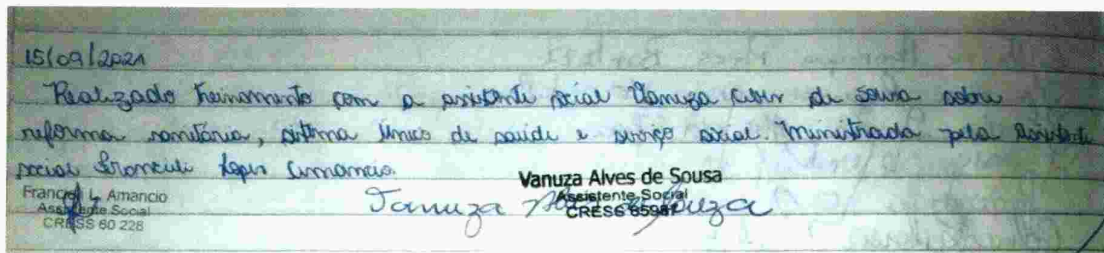 15/09/2021
Realizado treinamento com a assistente social Vanuza Alves de Sousa sobre
reforma sanitária, sistema único de saúde e serviço social. Ministrada pela Assistente
social Francieli Lopes Amancio.
Vanuza Alves de Sousa
Assistente Social
CRESS
Francieli L. Amancio
Assistente Social
CRESS 60 228
Vanuza Alves de Souza